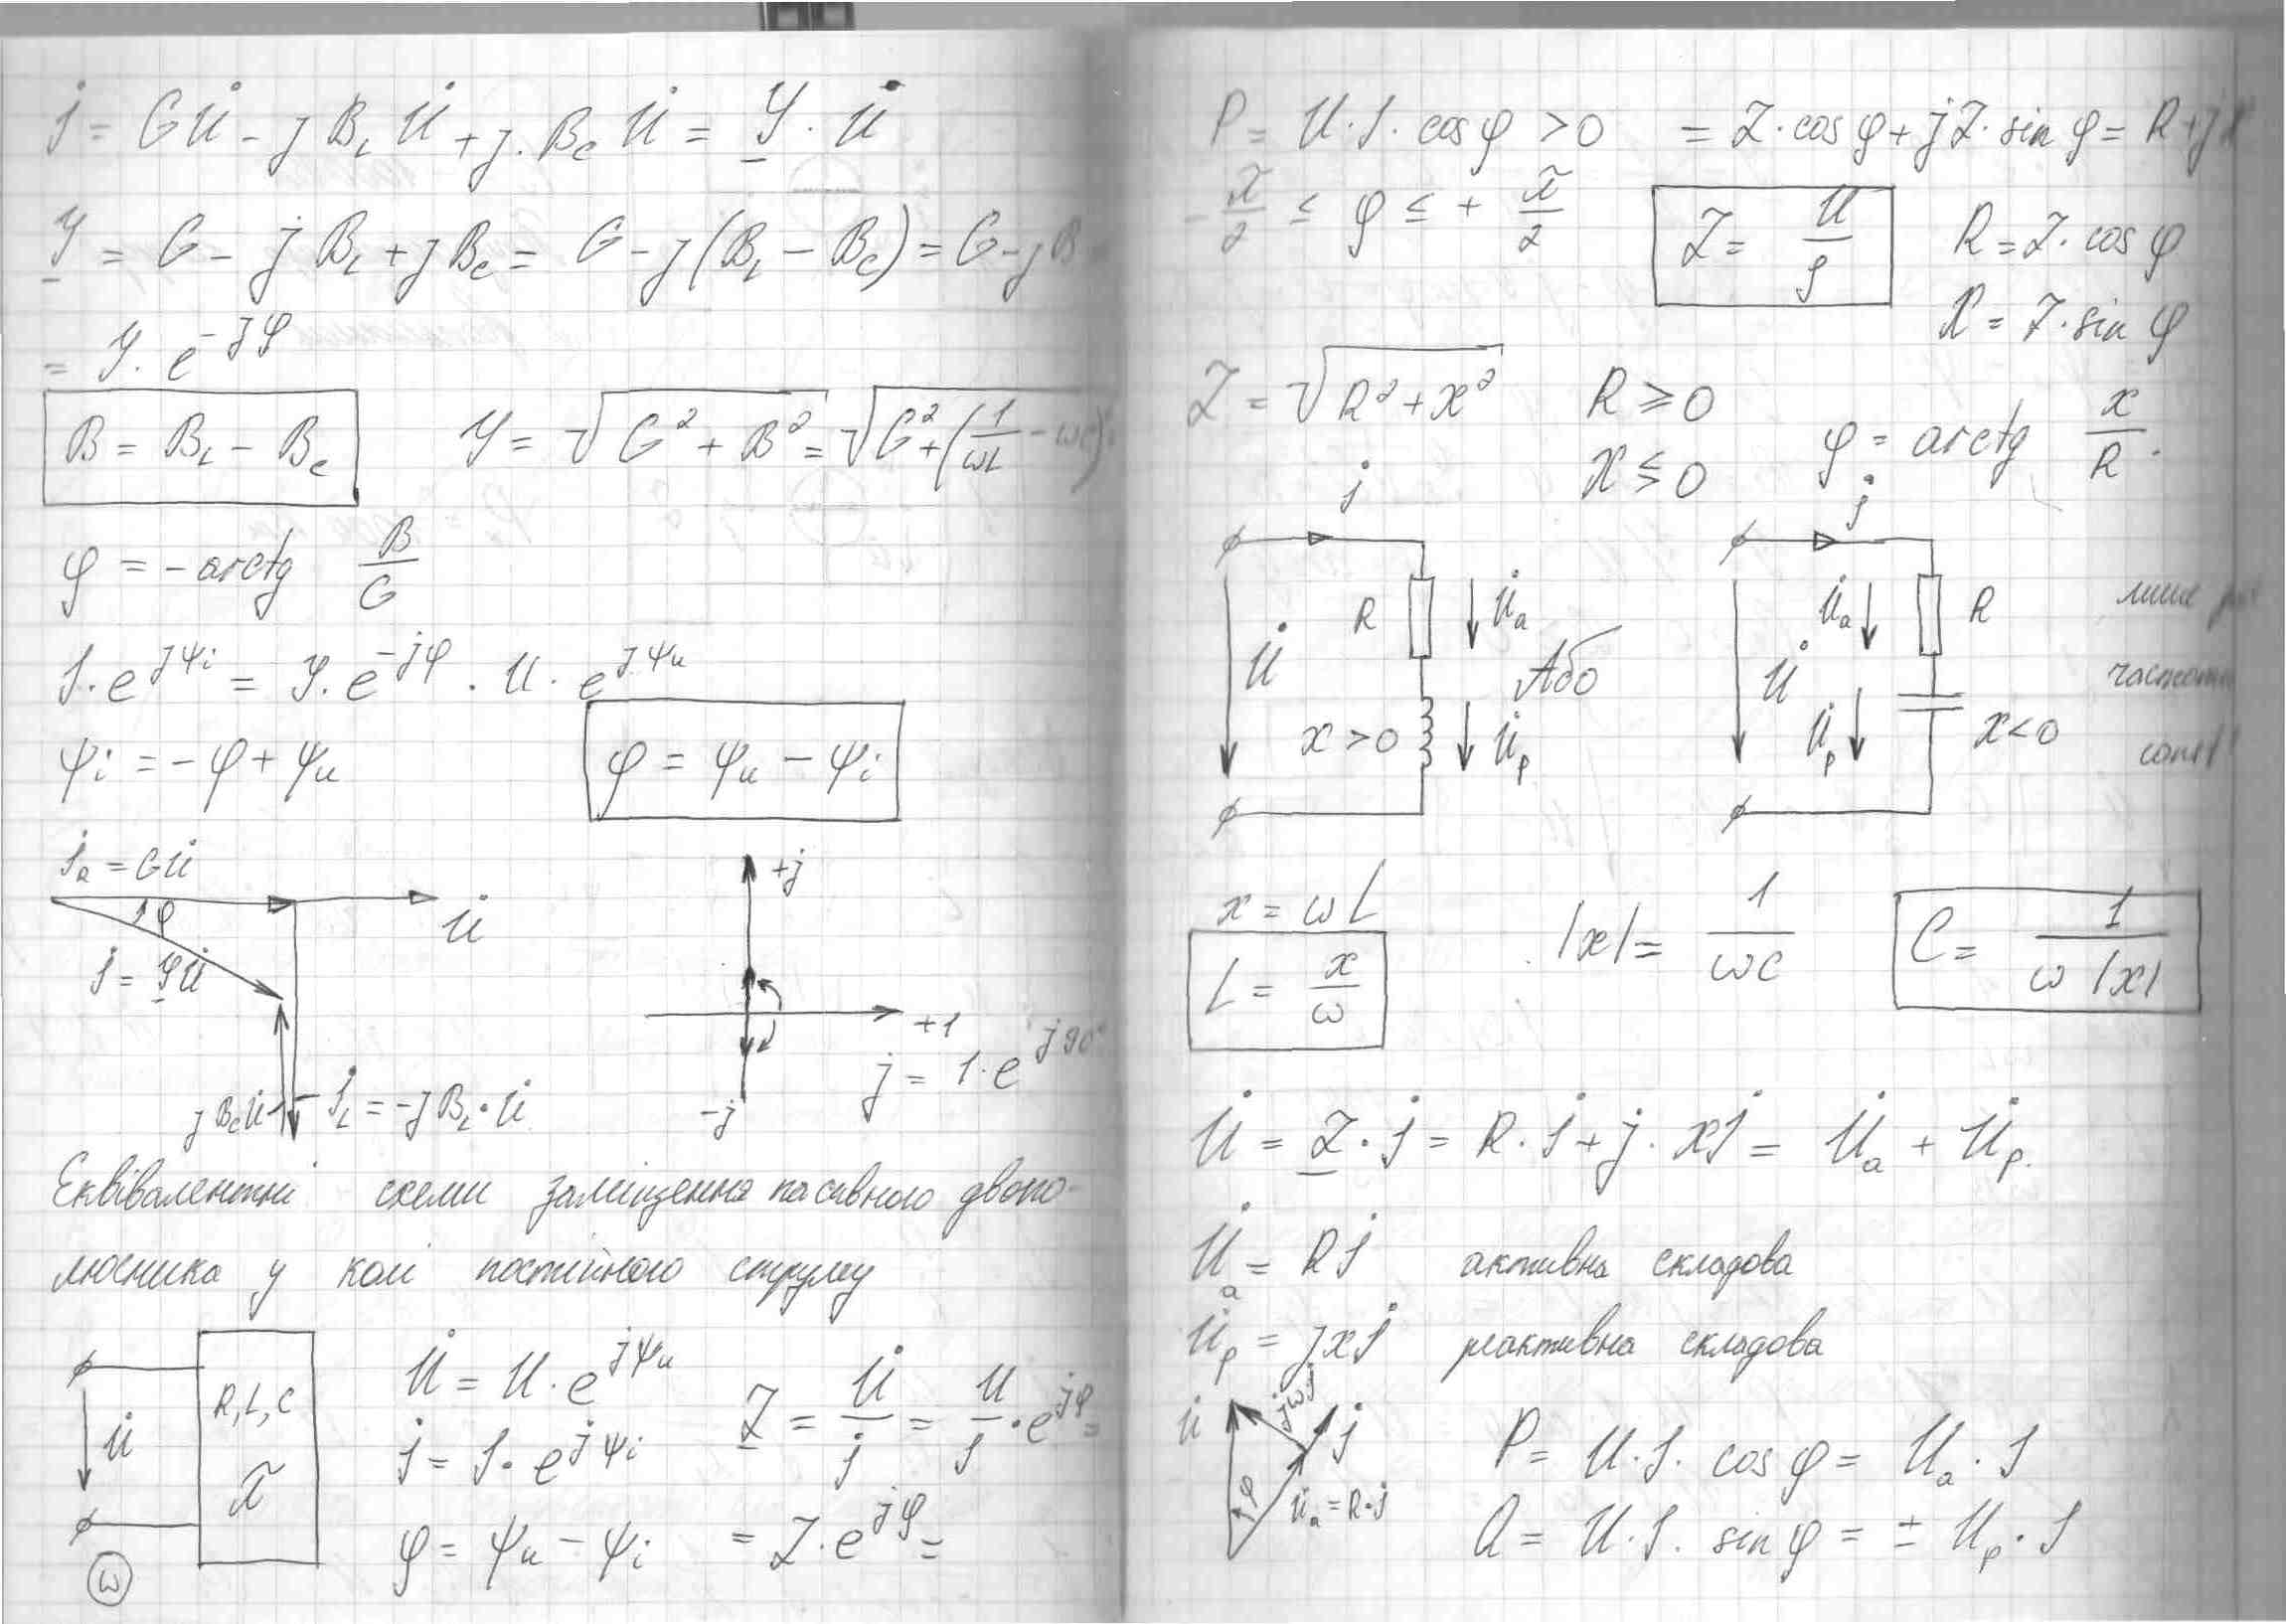 İ = GU̇ - jB_L U̇ + j·B_C U̇ = Y̲ · U̇
Y̲ = G - jB_L + jB_C = G - j(B_L - B_C) = G - jB =
= Y · e^{-jφ}
B = B_L - B_C
Y = √(G² + B²) = √(G² + (1/ωL - ωC)²)
φ = - arctg B/G
I · e^{jψi} = Y · e^{-jφ} · U · e^{jψu}
ψi = -φ + ψu
φ = ψu - ψi
İ_R = GU̇
φ
U̇
İ = Y̲U̇
jB_C U̇
İ_L = -jB_L · U̇
+j
+1
-j
j = 1 · e^{j90°}
Еквівалентні схеми заміщення пасивного двопо-
люсника у колі постійного струму
U̇
R, L, C
π
ω
U̇ = U · e^{jψu}
İ = I · e^{jψi}
φ = ψu - ψi
Z̲ = U̇/İ = U/I · e^{jφ} =
= Z · e^{jφ} =
P = U · I · cos φ > 0
= Z · cos φ + jZ · sin φ = R + jX
- π/2 ≤ φ ≤ + π/2
Z = U/I
R = Z · cos φ
X = Z · sin φ
Z = √(R² + x²)
R ⩾ 0
X ≶ 0
φ = arctg x/R.
İ
U̇
R
U̇a
x > 0
U̇р
Або
İ
U̇
U̇a
R
U̇р
x < 0
лише
const
x = ωL
L = x/ω
|x| = 1/ωC
C = 1/ω|x|
U̇ = Z̲ · İ = R · İ + j · xİ = U̇a + U̇р.
U̇a = Rİ активна складова
U̇р = jxİ реактивна складова
U̇
jωİ
İ
φ
U̇a = R · İ
P = U · I · cos φ = Ua · I
Q = U · I · sin φ = ± Uр · I